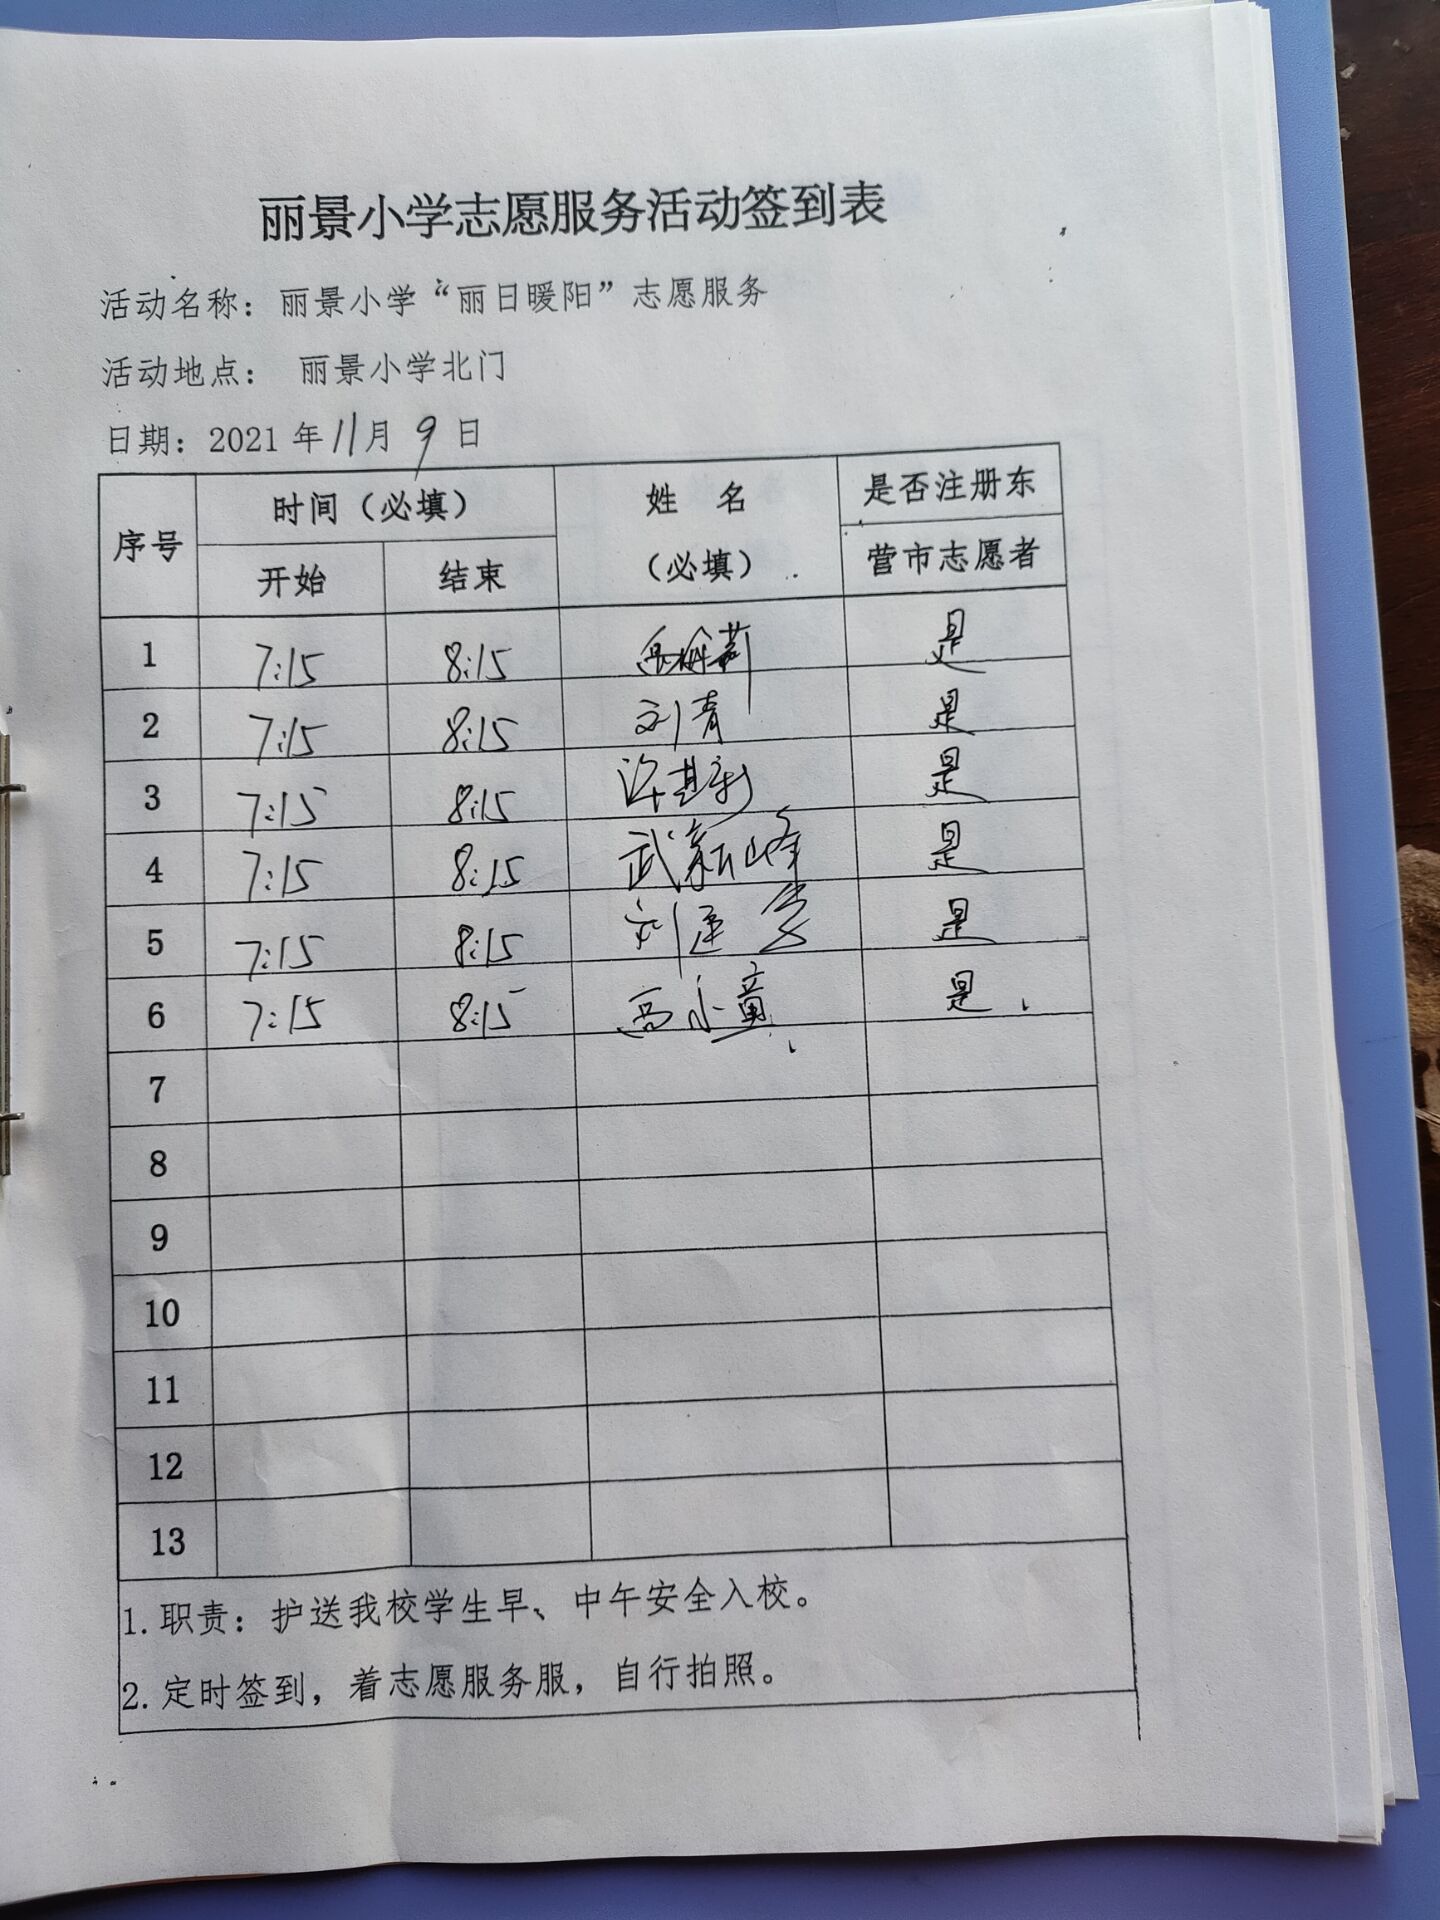 丽景小学志愿服务活动签到表
活动名称：丽景小学“丽日暖阳”志愿服务
活动地点： 丽景小学北门
日期：2021 年 11 月 9 日
序号 时间（必填） 姓 名（必填） 是否注册东营市志愿者
开始 结束
1 7:15 8:15 是
2 7:15 8:15 刘青 是
3 7:15 8:15 是
4 7:15 8:15 武新峰 是
5 7:15 8:15 刘 是
6 7:15 8:15 高小 是
7
8
9
10
11
12
13
1. 职责：护送我校学生早、中午安全入校。
2. 定时签到，着志愿服务服，自行拍照。